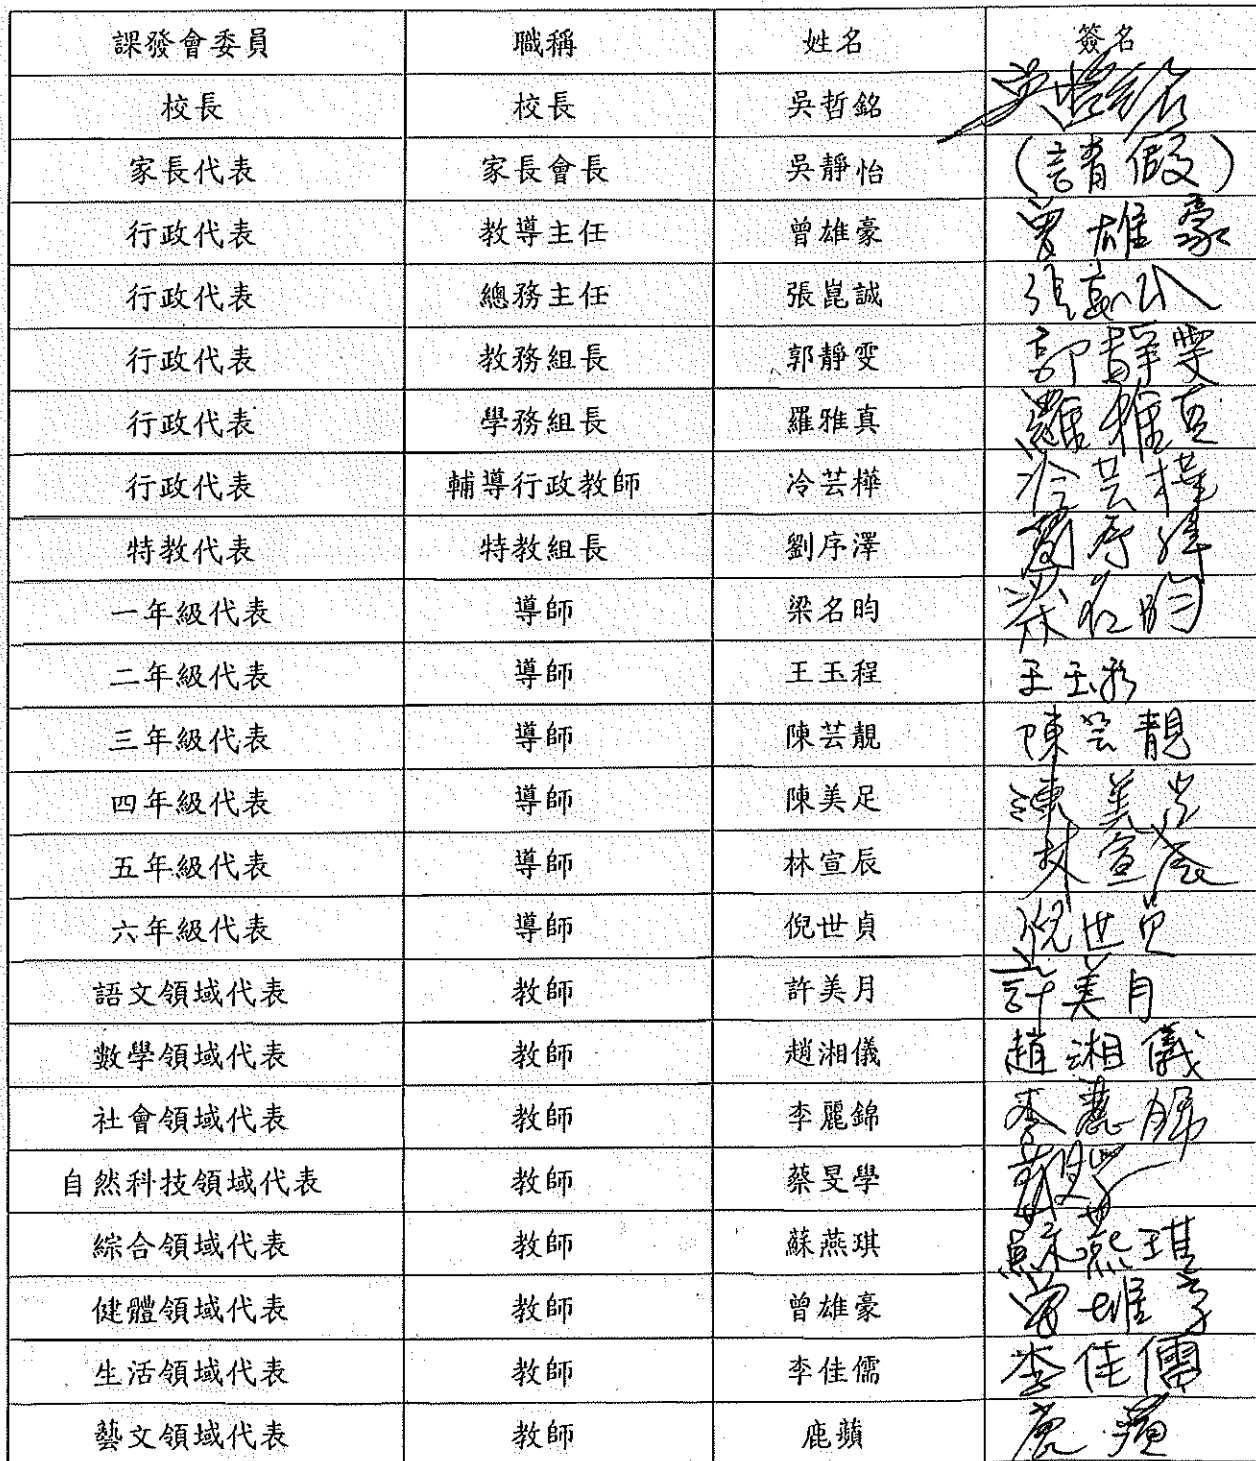 課發會委員 職稱 姓名 簽名
校長 校長 吳哲銘 吳哲銘
家長代表 家長會長 吳靜怡 (請假)
行政代表 教導主任 曾雄豪 曾雄豪
行政代表 總務主任 張崑誠
行政代表 教務組長 郭靜雯 郭靜雯
行政代表 學務組長 羅雅真 羅雅真
行政代表 輔導行政教師 冷芸樺 冷芸樺
特教代表 特教組長 劉序澤 劉序澤
一年級代表 導師 梁名昀 梁名昀
二年級代表 導師 王玉程 王玉程
三年級代表 導師 陳芸靚 陳芸靚
四年級代表 導師 陳美足 陳美足
五年級代表 導師 林宣辰 林宣辰
六年級代表 導師 倪世貞 倪世貞
語文領域代表 教師 許美月 許美月
數學領域代表 教師 趙湘儀 趙湘儀
社會領域代表 教師 李麗錦 李麗錦
自然科技領域代表 教師 蔡旻學
綜合領域代表 教師 蘇燕琪 蘇燕琪
健體領域代表 教師 曾雄豪 曾雄豪
生活領域代表 教師 李佳儒 李佳儒
藝文領域代表 教師 鹿蘋 鹿蘋